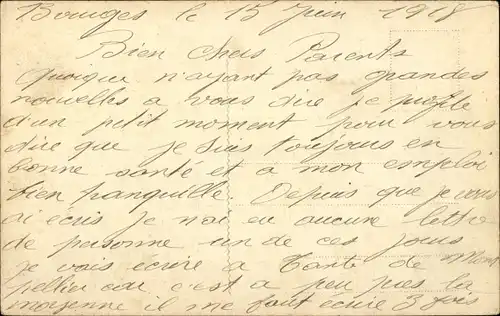 Bourges le 15 Juin 1918
Bien chers Parents
Quoique n'ayant pas grandes
nouvelles a vous dire je profite
d'un petit moment pour vous
dire que je suis toujours en
bonne santé et a mon emploi
bien tranquille. Depuis que je vous
ai ecris je n'ai eu aucune lettre
de personne un de ces jours
je vais écrire a Tante de Mont
pellier car c'est a peu pres la
moyenne il me faut écrire 3 fois